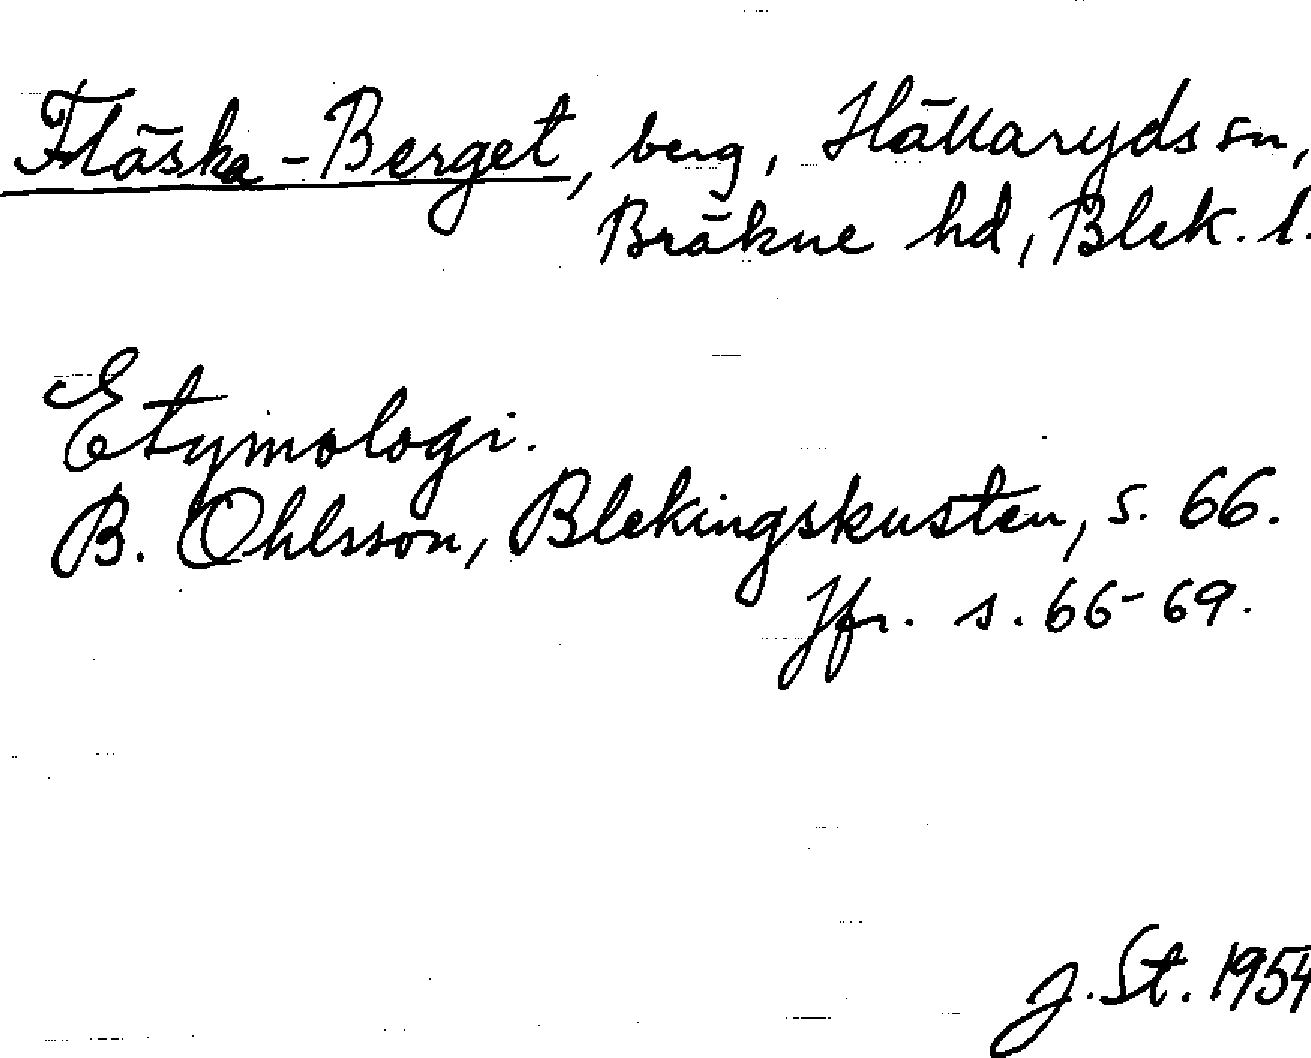 Fläska-Berget, berg, Hällaryds sn,
Bräkne hd, Blek. l.
Etymologi.
B. Ohlsson, Blekingskusten, s. 66.
Jfr. s. 66-69.
J. St. 1954